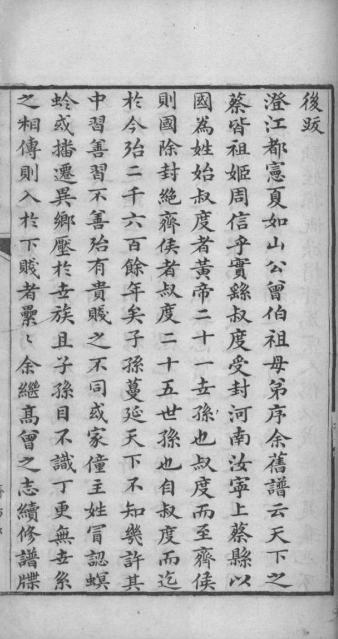 後跋
澄江都憲夏如山公曾伯祖母弟序余舊譜云天下之
蔡皆祖姬周信乎實繇叔度受封河南汝寧上蔡縣以
國為姓始叔度者黃帝二十一世孫也叔度而至齊侯
則國除封絕齊侯者叔度二十五世孫也自叔度而迄
於今殆二千六百餘年矣子孫蔓延天下不知幾許其
中習善習不善殆有貴賤之不同或家僮主姓冒認螟
蛉或播遷異鄉壓於世族且子孫目不識丁更無世系
之相傳則入於下賤者纍〻余繼高曾之志續修譜牒